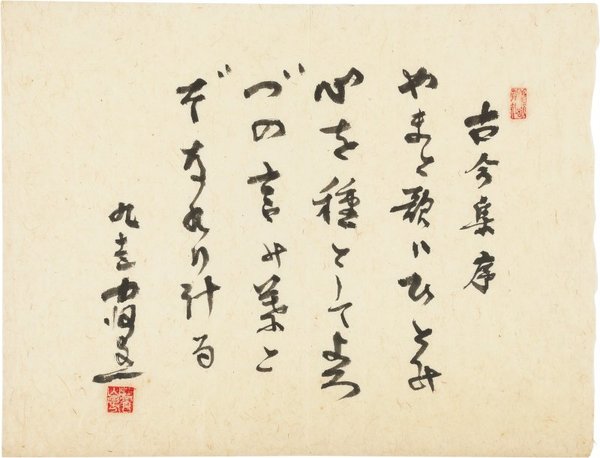 古今集序
やまと歌ハひとの
心を種としてよろ
づの言の葉と
ぞなれり計る
九